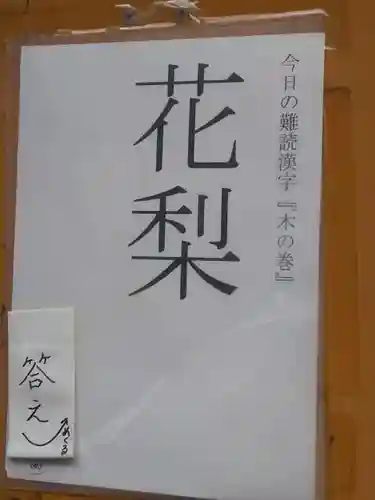 今日の難読漢字『木の巻』
花梨
答え
めくる